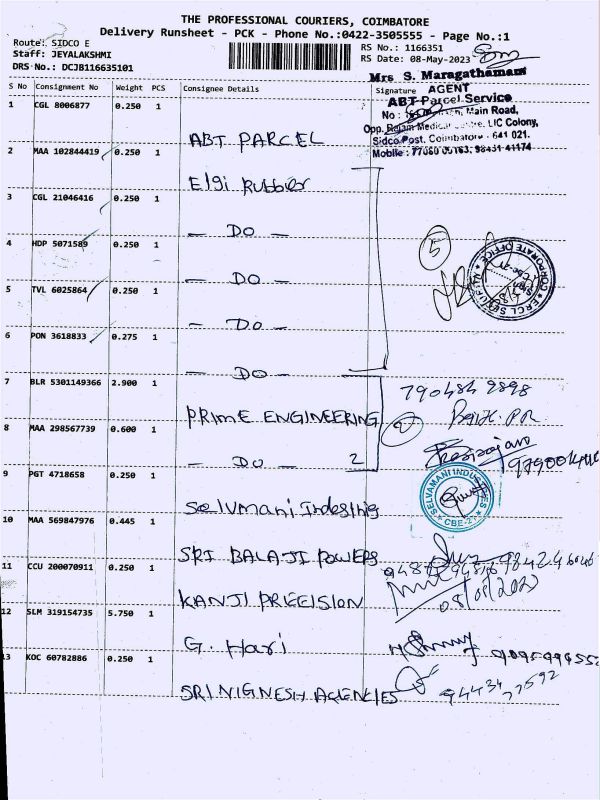 THE PROFESSIONAL COURIERS, COIMBATORE
Delivery Runsheet - PCK - Phone No.:0422-3505555 - Page No.:1
Route: SIDCO E
Staff: JEYALAKSHMI
DRS No.: DCJB116635101
RS No.: 1166351
RS Date: 08-May-2023
Mrs S. Maragathamani
AGENT
ABT Parcel Service
Main Road,
Opp. Rajam Medical Centre, LIC Colony,
Sidco Post, Coimbatore - 641 021.
S No Consignment No Weight PCS Consignee Details Signature
1 CGL 8006877 0.250 1
ABT PARCEL
2 MAA 102844419 0.250 1
Elgi Rubber
3 CGL 21046416 0.250 1
— DO —
4 HDP 5071589 0.250 1
— DO —
5 TVL 6025864 0.250 1
— DO —
6 PON 3618833 0.275 1
— DO —
5
7 BLR 5301149366 2.900 1
PRIME ENGINEERING
8 MAA 298567739 0.600 1
— DO — 2
9 PGT 4718658 0.250 1
Selvmani Indestris
SELVAMANI INDUSTRIES
CBE-21
10 MAA 569847976 0.445 1
SRI BALAJI POWERS
11 CCU 200070911 0.250 1
KANJI PRECISION
12 SLM 319154735 5.750 1
G. Hari
13 KOC 60782886 0.250 1
SRI NIGNESH AGENCIES